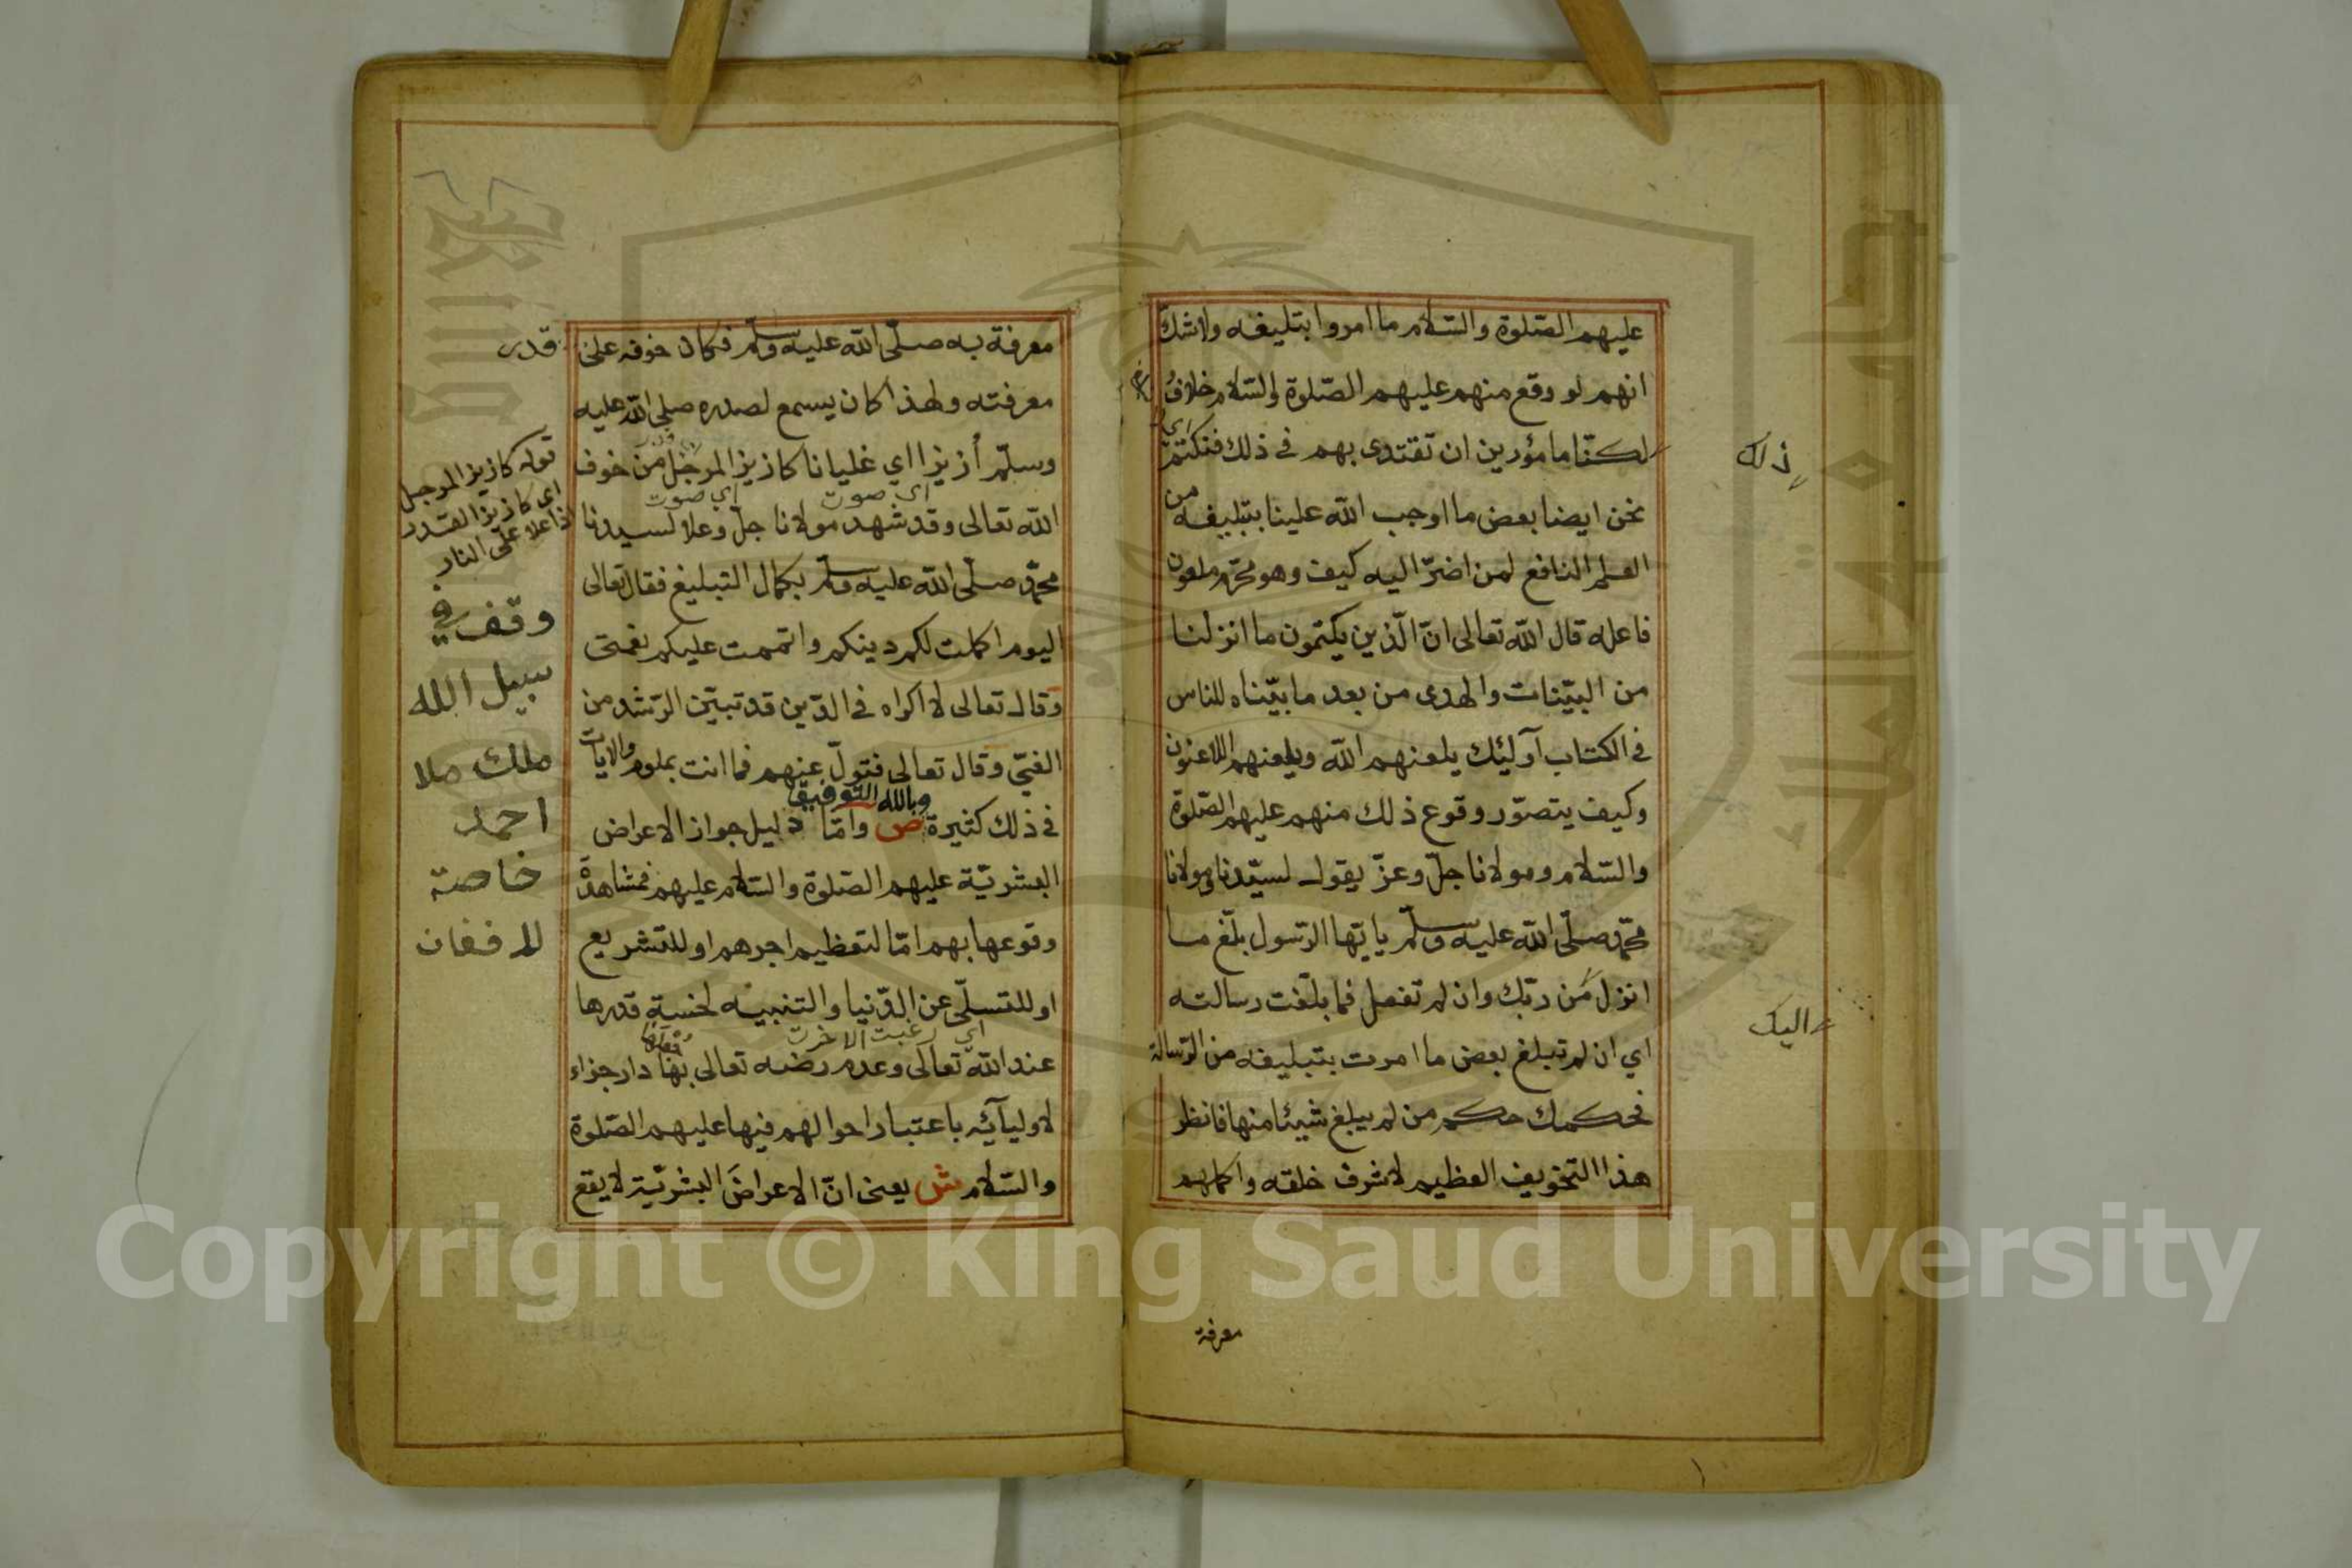 عليهم الصّلوة والسّلام ما امروا بتليغه ولا شكّ
انهم لو وقع منهم عليهم الصّلوة والسّلام خلافُ
ذلك
لكنّا مامؤرين ان تقتدى بهم فى ذلك فنكتم
اي
نحن ايضا بعض ما اوجب اللّه علينا بتبليغه من
العلم النافع لمن اضرّ اليه كيف وهو محرّم ملعون
فاعله قال اللّه تعالى انّ الّذين يكتمون ما انزلنا
من البيّنات والهدى من بعد ما بيّناه للناس
فى الكتاب آوليٰك يلعنهم اللّه ويلعنهم اللاعنون
وكيف يتصوّر وقوع ذلك منهم عليهم الصّلوة
والسّلام ومولانا جلّ وعزّ يقول لسيّدنا ومولانا
محمّد صلّى اللّه عليه وسلّم يا يّها الرّسول بلّغ ما
انزل من ربّك وان لم تفعل فما بلّغت رسالته
اليك
اي ان لم تبلغ بعض ما امرت بتبليغه من الرّسالة
فحكمك حكم من لم يبلغ شيئا منها فانظر
هذا التخويف العظيم لاشرف خلقه واكملهم
معرفة
معرفة به صلّى اللّه عليه وسلّم فكان خوفه على
قدر
معرفته ولهذا كان يسمع لصدره صلى اللّه عليه
وسلّم أزيزا اي غليانا كازيز المرجل من خوف
اى صوت
اي صوت
اللّه تعالى وقد شهد مولانا جلّ وعلا لسيدنا
محمّد صلّى اللّه عليه وسلّم بكمال التبليغ فقال تعالى
اليوم اكملت لكم دينكم واتممت عليكم نعمتى
وقال تعالى لا اكراه فى الدّين قد تبيّن الرّشد من
الغىّ وقال تعالى فتولّ عنهم فما انت بملوم والايات
فى ذلك كثيرة ص وامّا دليل جواز الاعراض
وبالله التوفيق
البشريّة عليهم الصّلوة والسّلام عليهم فمشاهدة
وقوعها بهم امّا لتعظيم اجرهم او للتشريع
او للتسلّى عن الدّنيا والتنبيه لخسة قدرها
اي رغبت الاخرت
عند اللّه تعالى وعدم رضه تعالى بها دار جزاء
لاوليآئه باعتبار احوالهم فيها عليهم الصّلوة
والسّلام ش يعنى انّ الاعراضَ البشريّة لا يقع
قوله كازيز المرجل
اى كازيز القدر
اذا علا على النار
وقف في
سبيل الله
ملك ملا
احمد
خاصة
للافغان
Copyright © King Saud University